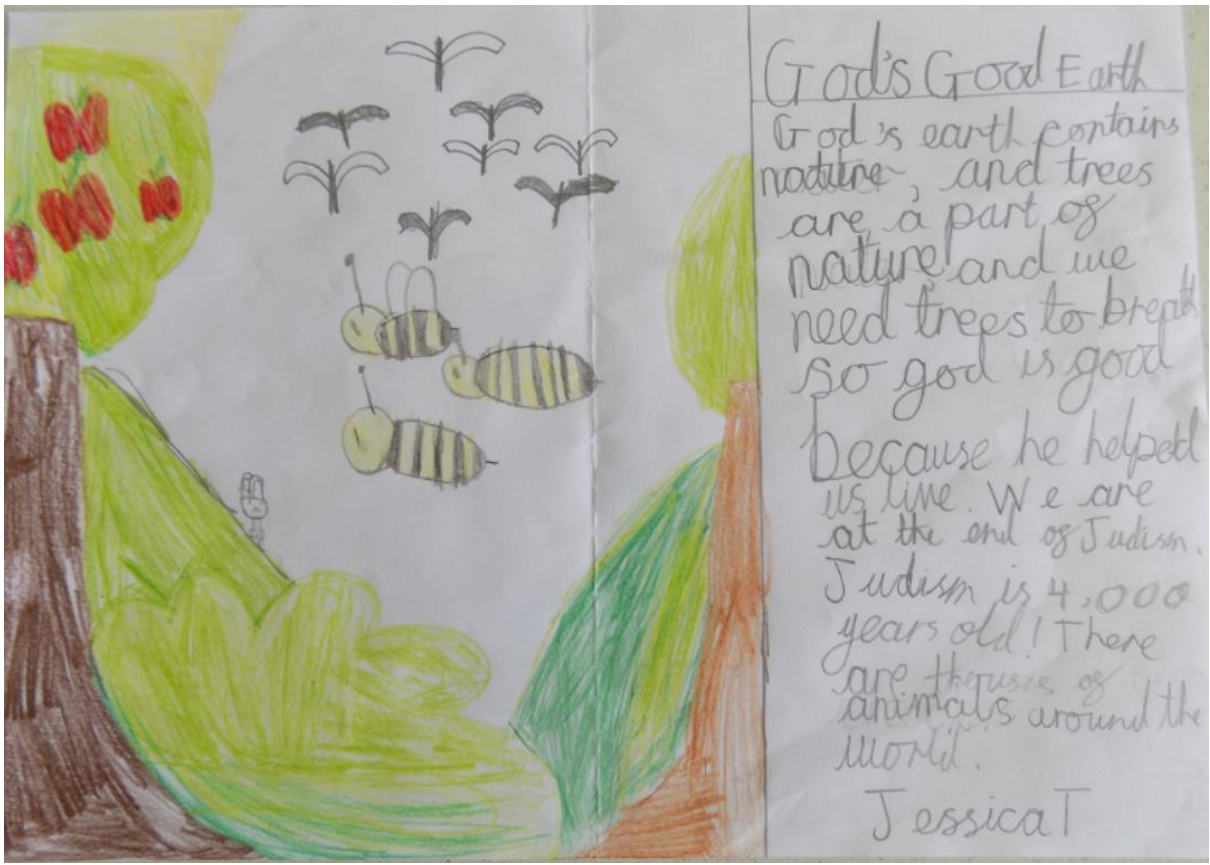 God's Good Earth
God's earth contains
nature, and trees
are a part of
nature and we
need trees to breath
so god is good
because he helped
us live. We are
at the end of Judism.
Judism is 4,000
years old! There
are of
animals around the
world.
Jessica T